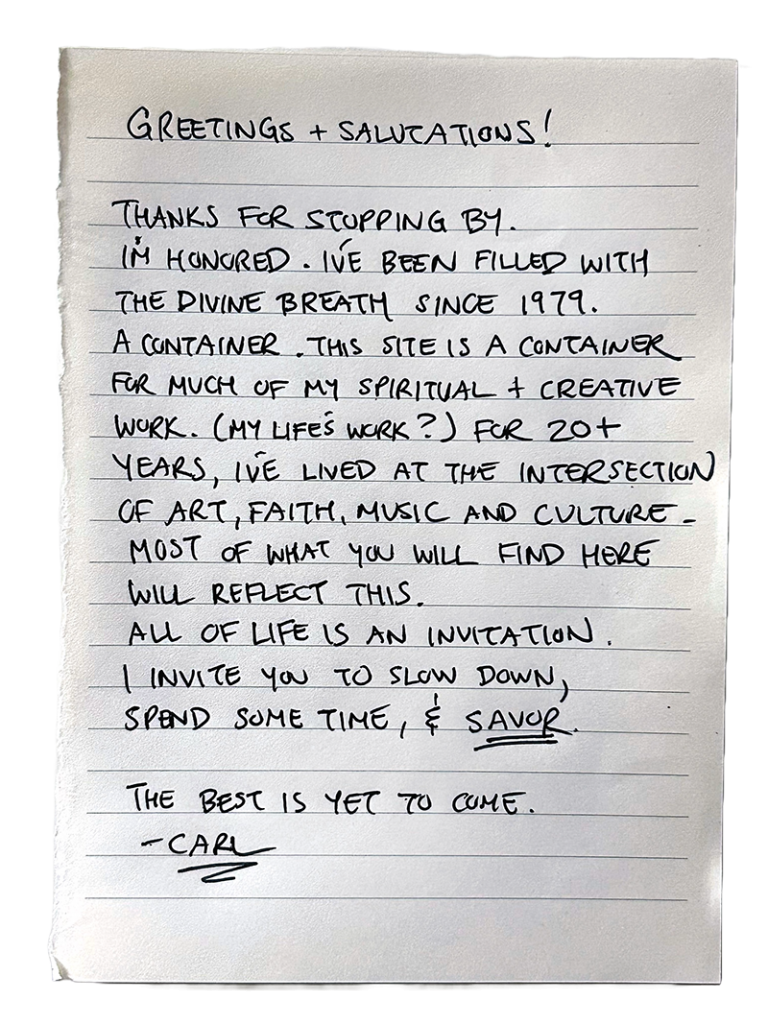 GREETINGS + SALUTATIONS!
THANKS FOR STOPPING BY.
I'M HONORED. I'VE BEEN FILLED WITH
THE DIVINE BREATH SINCE 1979.
A CONTAINER. THIS SITE IS A CONTAINER
FOR MUCH OF MY SPIRITUAL + CREATIVE
WORK. (MY LIFE'S WORK?) FOR 20+
YEARS, I'VE LIVED AT THE INTERSECTION
OF ART, FAITH, MUSIC AND CULTURE -
MOST OF WHAT YOU WILL FIND HERE
WILL REFLECT THIS.
ALL OF LIFE IS AN INVITATION.
I INVITE YOU TO SLOW DOWN,
SPEND SOME TIME, & SAVOR.
THE BEST IS YET TO COME.
-CARL